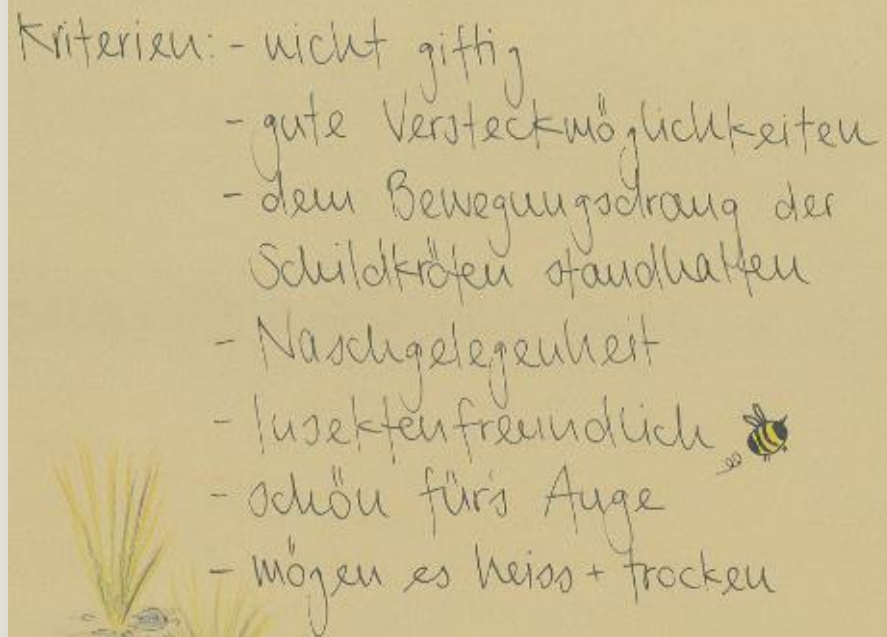 Kriterien: - nicht giftig
- gute Versteckmöglichkeiten
- dem Bewegungsdrang der
Schildkröten standhalten
- Naschgelegenheit
- Insektenfreundlich
- schön für's Auge
- mögen es heiss + trocken